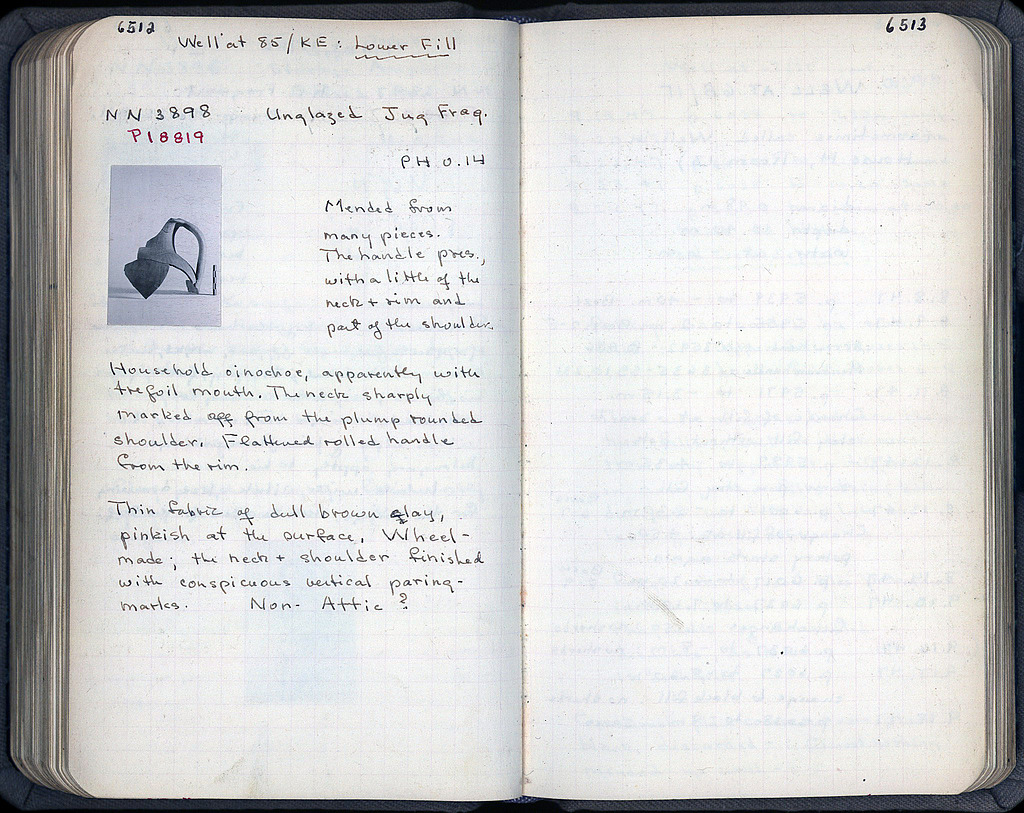 6512
Well at 85/KE: Lower Fill
NN 3898 Unglazed Jug Frag.
P18819
PH 0.14
Mended from
many pieces.
The handle pres.,
with a little of the
neck + rim and
part of the shoulder.
Household oinochoe, apparently with
trefoil mouth. The neck sharply
marked off from the plump rounded
shoulder. Flattened rolled handle
from the rim.
Thin fabric of dull brown clay,
pinkish at the surface. Wheel-
made; the neck + shoulder finished
with conspicuous vertical paring-
marks. Non-Attic?
6513